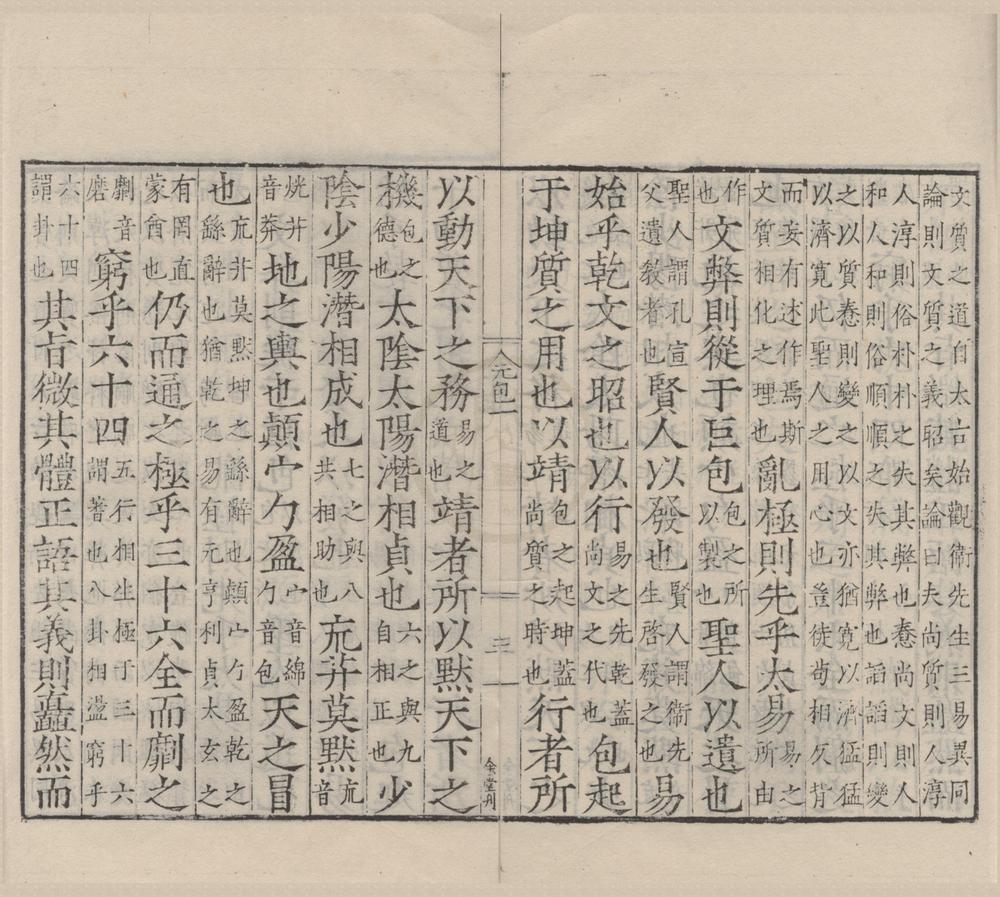 文質之道自太古始觀衛先生三易異同
論則文質之義昭矣論曰夫尚質則人淳
人淳則俗朴朴之失其弊也憃尚文則人
和人和則俗順順之失其弊也謟謟則變
之以質憃則變之以文亦猶寛以濟猛猛
以濟寛此聖人之用心也豈徒苟相反背
而妄有述作焉斯文質相化之理也亂極則先乎太易易之所由
作也文弊則從于巨包包之所以製也聖人以遺也
聖人謂孔宣父遺教者也賢人以發也賢人謂衛先生啓發之也易
始乎乾文之昭也以行易之先乾蓋尚文之代也包起
于坤質之用也以靖包之起坤蓋尚質之時也行者所
元包一 三
以動天下之務易之道也靖者所以默天下之
機包之德也太陰太陽潛相貞也六之與九自相正也少
陰少陽潛相成也七之與八共相助也巟茻莫默巟音
烧茻音莽地之輿也顛宀勹盈宀音綿勹音包天之冒
也巟茻莫默坤之繇辭也顛宀勹盈乾之繇辭也猶乾之易有元亨利貞太玄之
有罔直蒙酋也仍而通之極乎三十六全而劘之
劘音磨窮乎六十四五行相生極于三十六謂蓍也八卦相盪窮乎
六十四謂卦也其旨微其體正語其義則矗然而